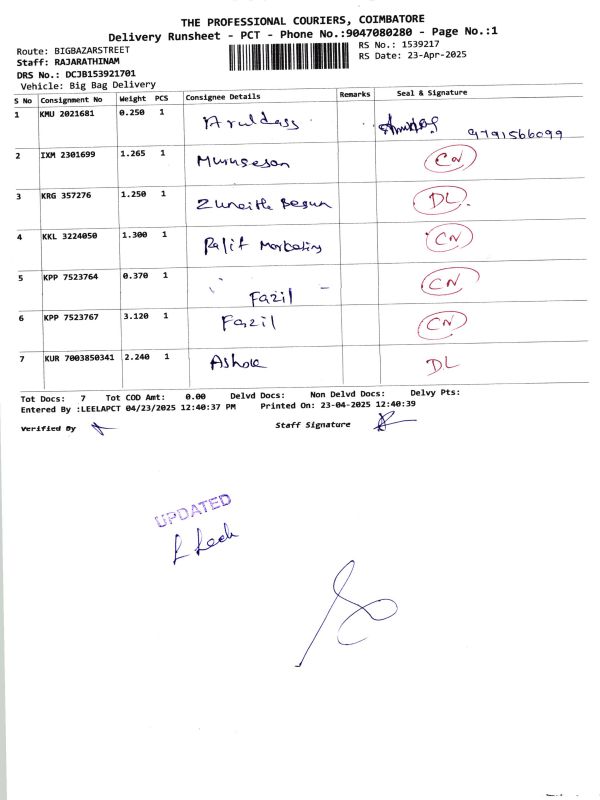 THE PROFESSIONAL COURIERS, COIMBATORE
Delivery Runsheet - PCT - Phone No.:9047080280 - Page No.:1
Route: BIGBAZARSTREET
RS No.: 1539217
Staff: RAJARATHINAM
RS Date: 23-Apr-2025
DRS No.: DCJB153921701
Vehicle: Big Bag Delivery
S No Consignment No Weight PCS Consignee Details Remarks Seal & Signature
1 KMU 2021681 0.250 1 Aruldass 9791566099
2 IXM 2301699 1.265 1 Muruseson CN
3 KRG 357276 1.250 1 Zuneithe Begun DL
4 KKL 3224050 1.300 1 Marketing CN
5 KPP 7523764 0.370 1 Fazil CN
6 KPP 7523767 3.120 1 Fazil CN
7 KUR 7003850341 2.240 1 Ashok DL
Tot Docs: 7 Tot COD Amt: 0.00 Delvd Docs: Non Delvd Docs: Delvy Pts:
Entered By :LEELAPCT 04/23/2025 12:40:37 PM Printed On: 23-04-2025 12:40:39
Verified By
Staff Signature
UPDATED